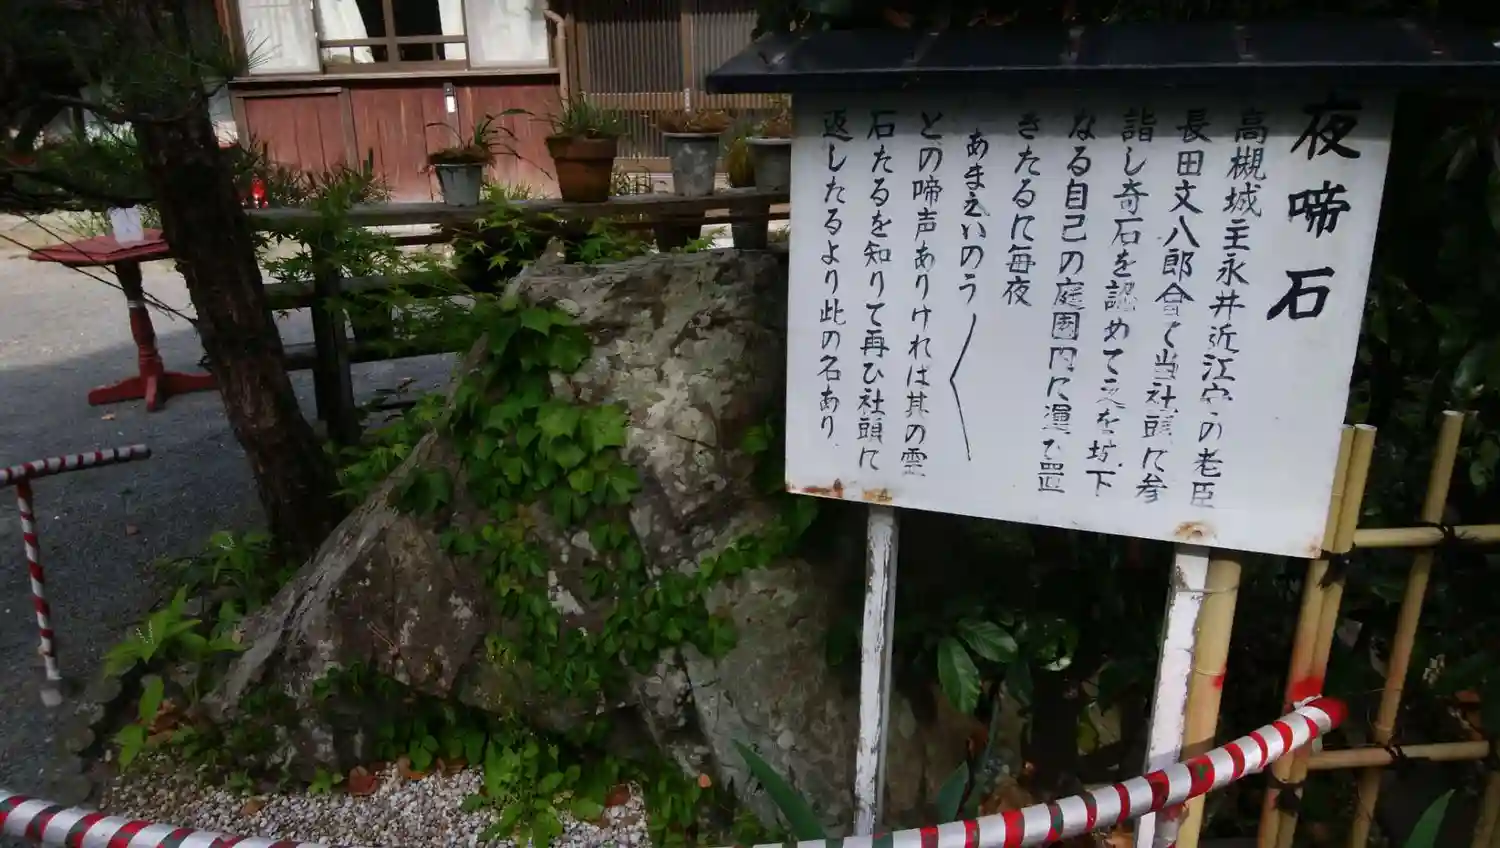 夜啼石
高槻城主永井近江守の老臣
長田文八郎會て当社頭に参
詣し奇石を認めて之を城下
なる自己の庭園内に運び置
きたるに毎夜
あまえいのう
との啼声ありければ其の霊
石たるを知りて再ひ社頭に
返したるより此の名あり